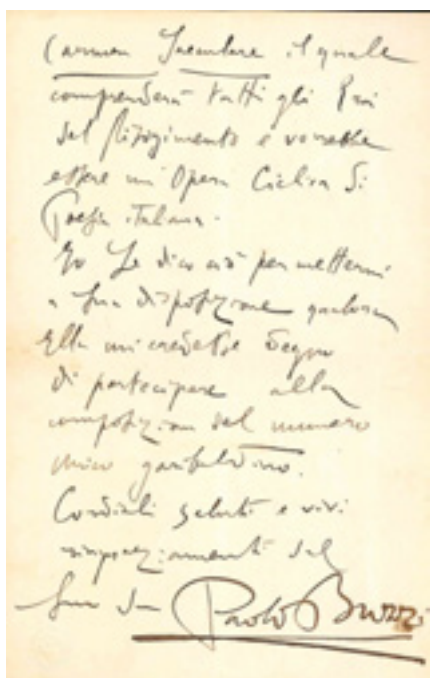 Carmen Saeculare il quale
comprenderà tutti gli Eroi
del Risorgimento e vorrebbe
essere un' Opera Ciclica di
Poesia italiana.
Io Le dico ciò per mettermi
a Sua disposizione qualora
Ella mi credesse degno
di partecipare alla
composizion del numero
unico garibaldino.
Cordiali saluti e vivi
ringraziamenti dal
Suo Paolo Buzzi